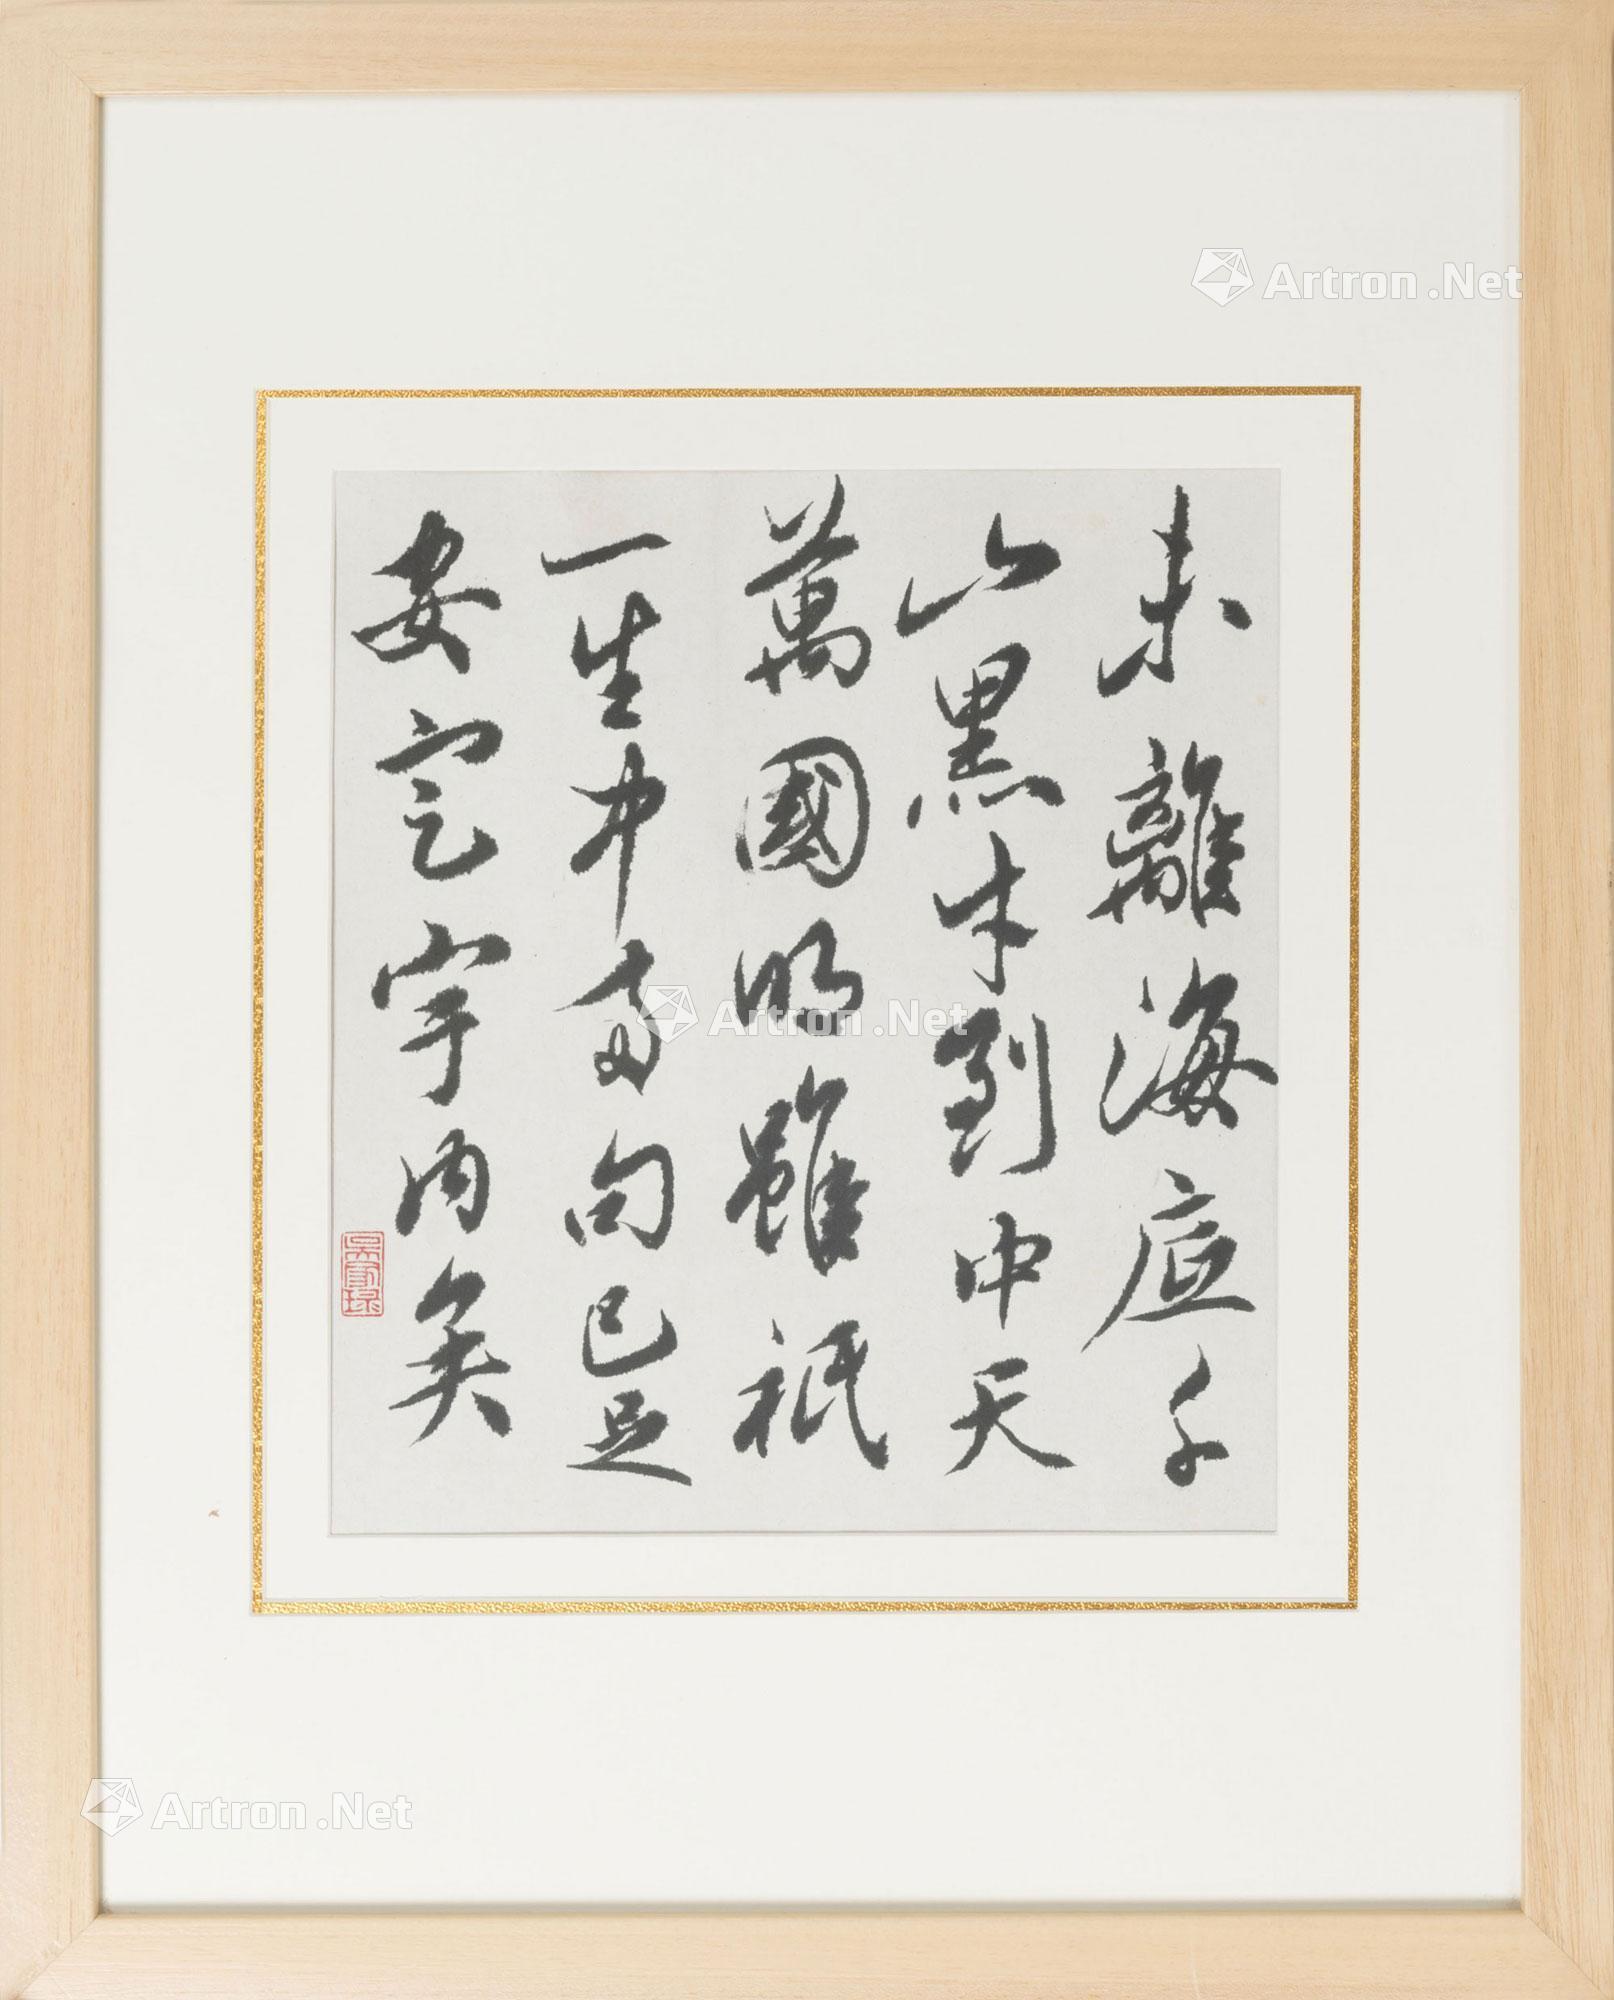 未離海底千
山黑才到中天
萬國明雖祇
一生中兩句已足
安定宇內矣
Artron.Net
Artron.Net
Artron.Net